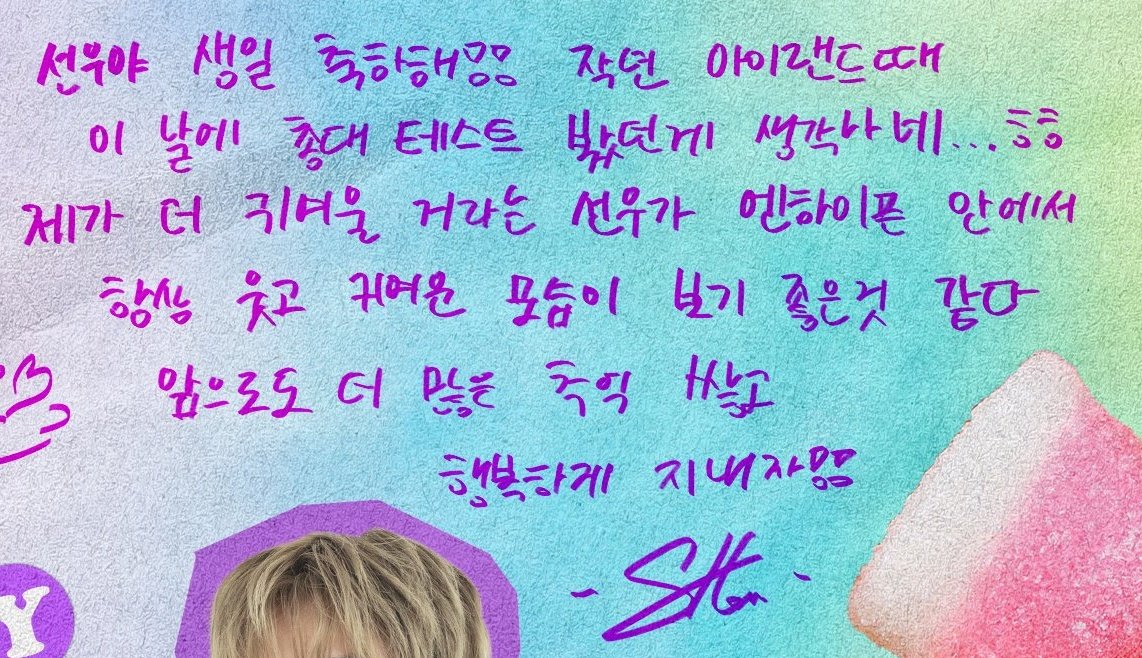 선우야 생일 축하해!! 작년 아이랜드때
이 날에 총대 테스트 봤던게 생각나네...ㅎㅎ
제가 더 귀여울 거라는 선우가 엔하이픈 안에서
항상 웃고 귀여운 모습이 보기 좋은것 같다
앞으로도 더 많은 추억 쌓고
행복하게 지내자!!
Y